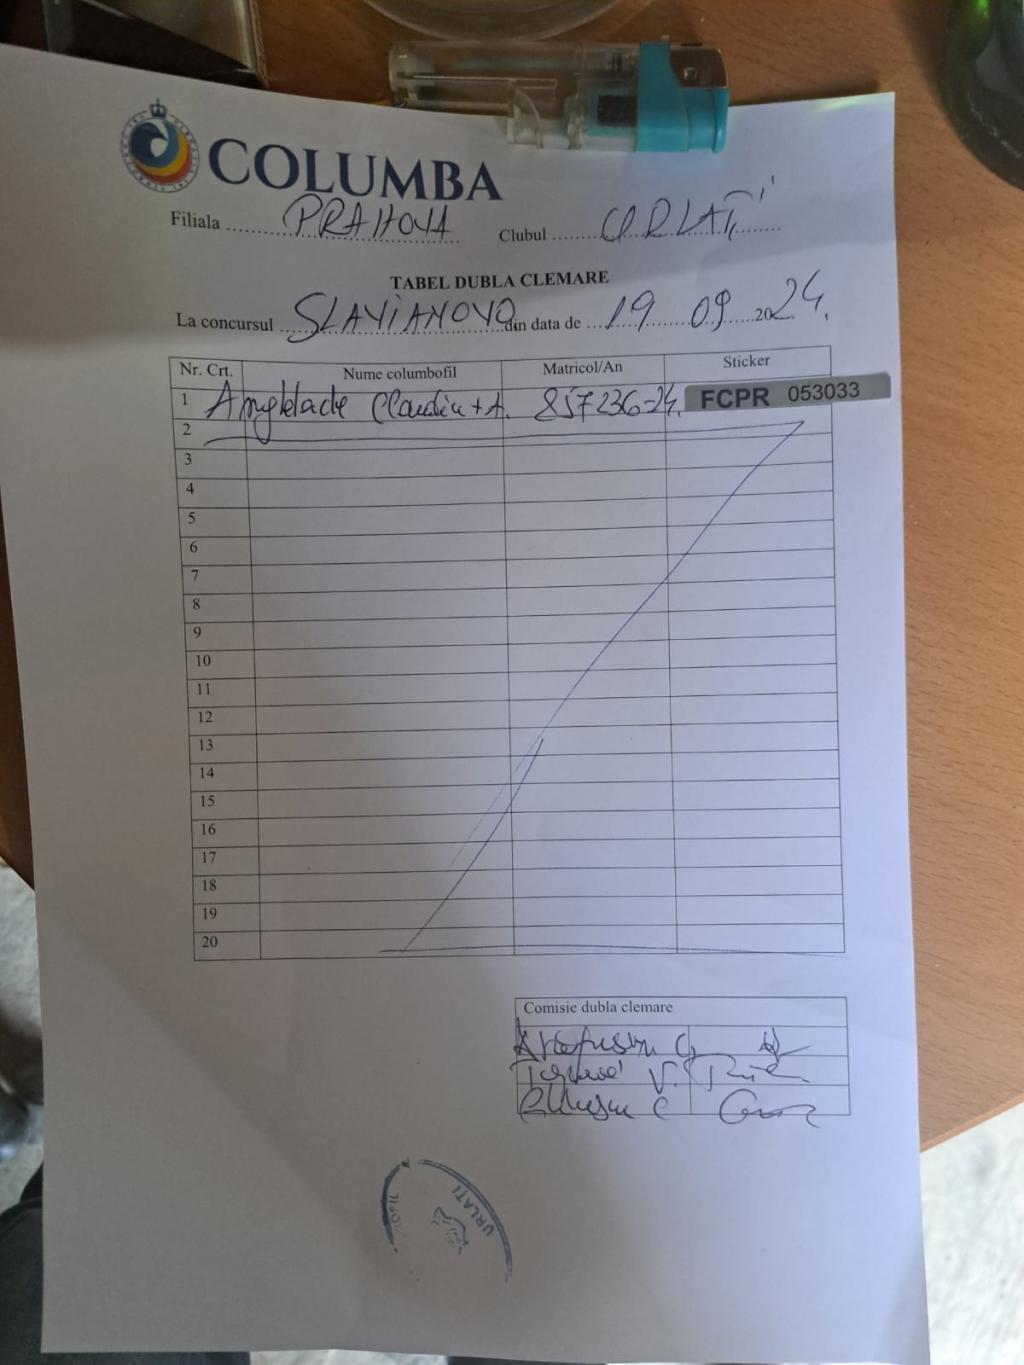 COLUMBA
Filiala PRAHOVA Clubul URLAȚI
TABEL DUBLA CLEMARE
La concursul SLAVIANOVO din data de 19 09 2024.
Nr. Crt. Nume columbofil Matricol/An Sticker
1 Claudiu + A. 857236-24. FCPR 053033
2
3
4
5
6
7
8
9
10
11
12
13
14
15
16
17
18
19
20
Comisie dubla clemare
G
V.
C
URLATI